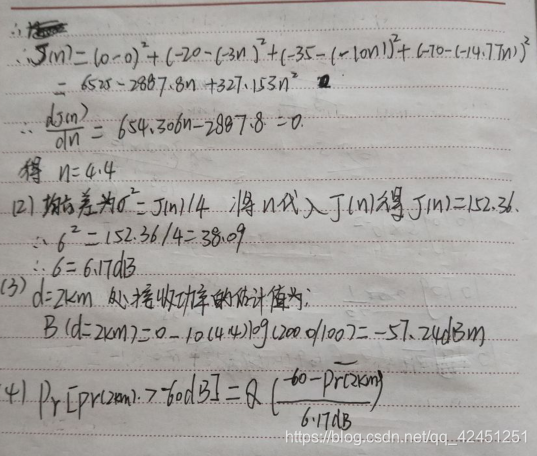 ∴
∴ J(n) = (0-0)² + (-20-(-3n))² + (-35-(-10n))² + (-70-(-14.77n))²
= 6525 - 2887.8n + 327.153n²
∴ dJ(n)/dn = 654.306n - 2887.8 = 0.
得 n=4.4
(2) 均方差为σ² = J(n)/4 将n代入J(n)得J(n)=152.36.
∴ 6² = 152.36/4 = 38.09
∴ 6 = 6.17dB
(3) d=2km 处接收功率的估计值为:
B(d=2km) = 0-10(4.4)log(2000/100) = -57.24dBm
(4) Pr[Pr(2km) > -60dB] = Q(-60-Pr(2km)/6.17dB)
https://blog.csdn.net/qq_42451251